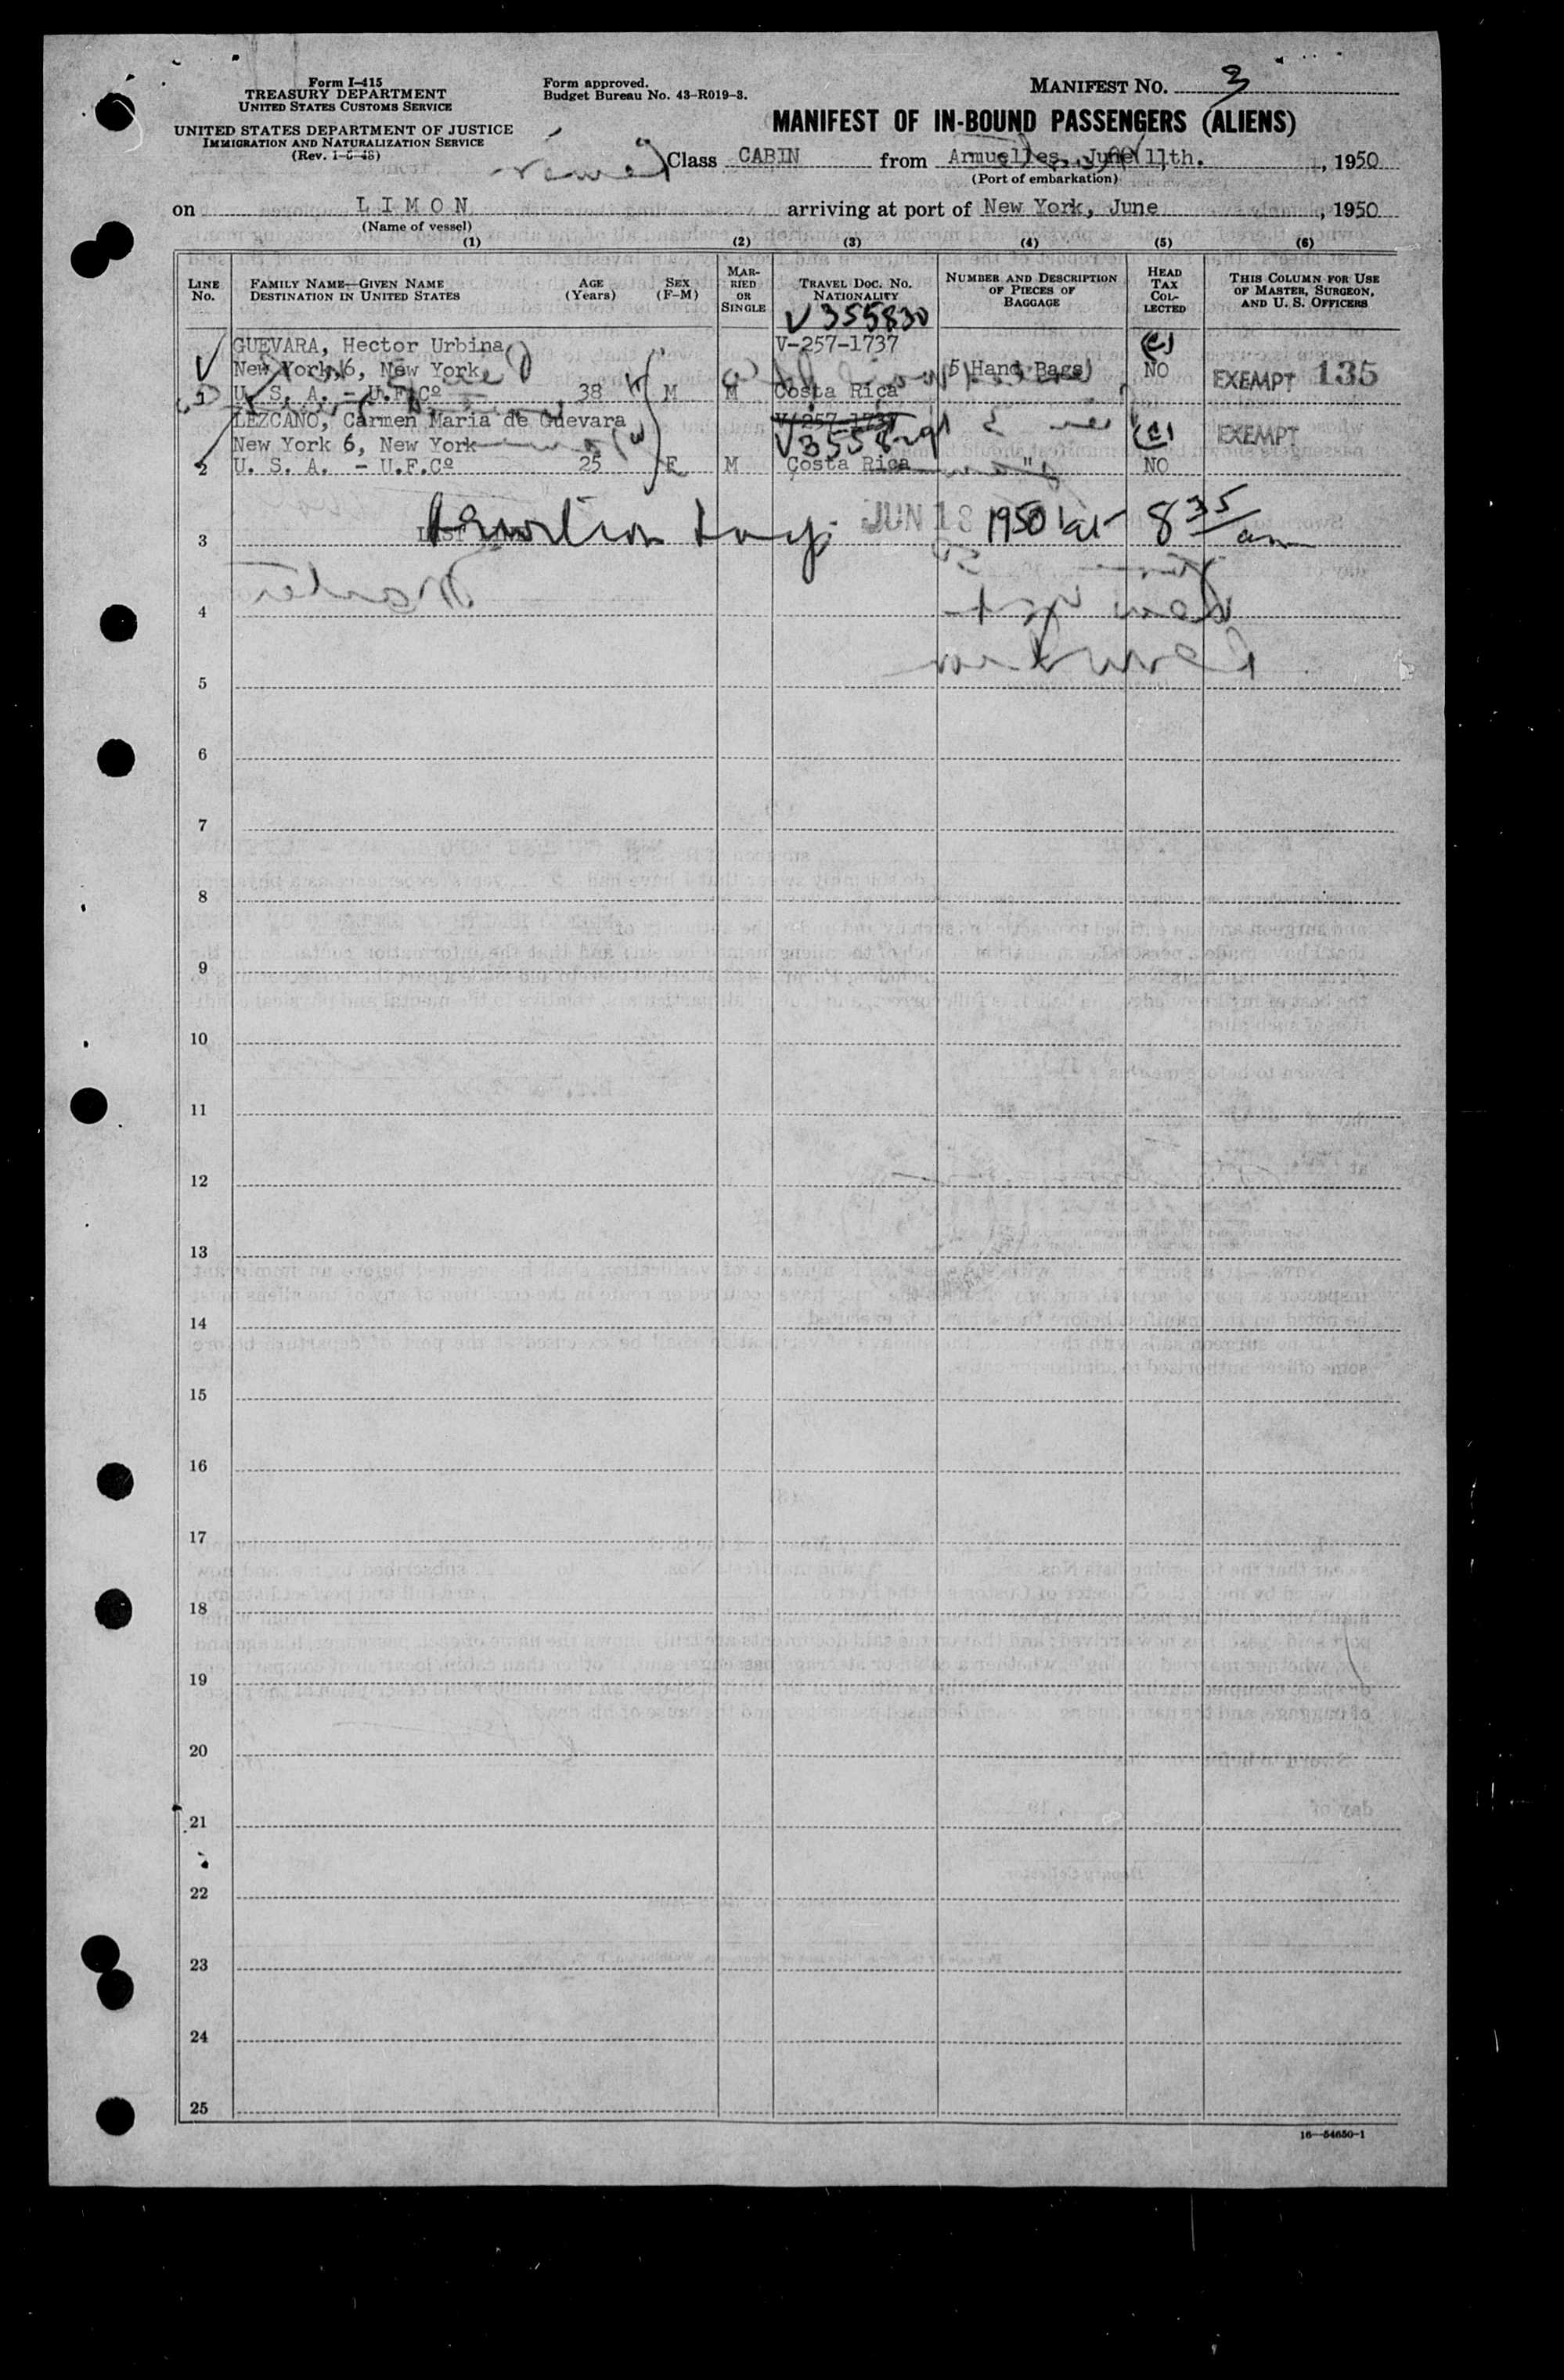 Form I-415
TREASURY DEPARTMENT
UNITED STATES CUSTOMS SERVICE
UNITED STATES DEPARTMENT OF JUSTICE
IMMIGRATION AND NATURALIZATION SERVICE
(Rev. 1-5-48)
Form approved.
Budget Bureau No. 43-R019-3.
MANIFEST NO. 3
MANIFEST OF IN-BOUND PASSENGERS (ALIENS)
Class CABIN from Armuelles, June 11th., 1950
(Port of embarkation)
on LIMON arriving at port of New York, June, 1950
(Name of vessel)
(1) (2) (3) (4) (5) (6)
LINE No. FAMILY NAME—GIVEN NAME DESTINATION IN UNITED STATES AGE (Years) SEX (F-M) MARRIED OR SINGLE TRAVEL DOC. NO. NATIONALITY NUMBER AND DESCRIPTION OF PIECES OF BAGGAGE HEAD TAX COLLECTED THIS COLUMN FOR USE OF MASTER, SURGEON, AND U. S. OFFICERS
V355830
GUEVARA, Hector Urbina V-257-1737
New York 6, New York 5 Hand Bags NO EXEMPT 135
1 U. S. A. - U.F.Cº 38 M M Costa Rica
LEZCANO, Carmen Maria de Guevara V-257-1737
New York 6, New York EXEMPT
2 U. S. A. - U.F.Cº 25 F M Costa Rica " NO
3 JUN 18 1950 at 8 35 am
4
5
6
7
8
9
10
11
12
13
14
15
16
17
18
19
20
21
22
23
24
25
16—54650-1